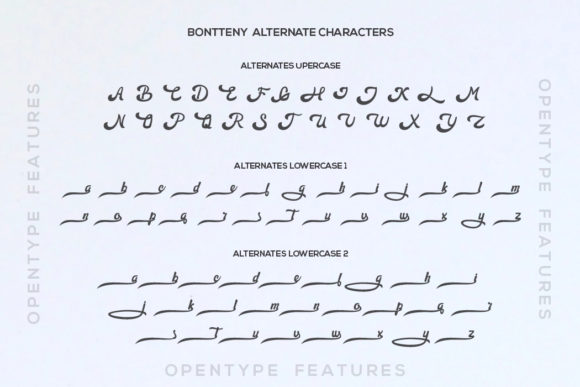 BONTTENY ALTERNATE CHARACTERS
ALTERNATES UPERCASE
A B C D E F G H I J K L M
N O P Q R S T U V W X Y Z
ALTERNATES LOWERCASE 1
a b c d e f g h i j k l m
n o p q r s t u v w x y z
ALTERNATES LOWERCASE 2
a b c d e f g h i
j k l m n o p q r
s t u v w x y z
OPENTYPE FEATURES
OPENTYPE FEATURES
OPENTYPE FEATURES